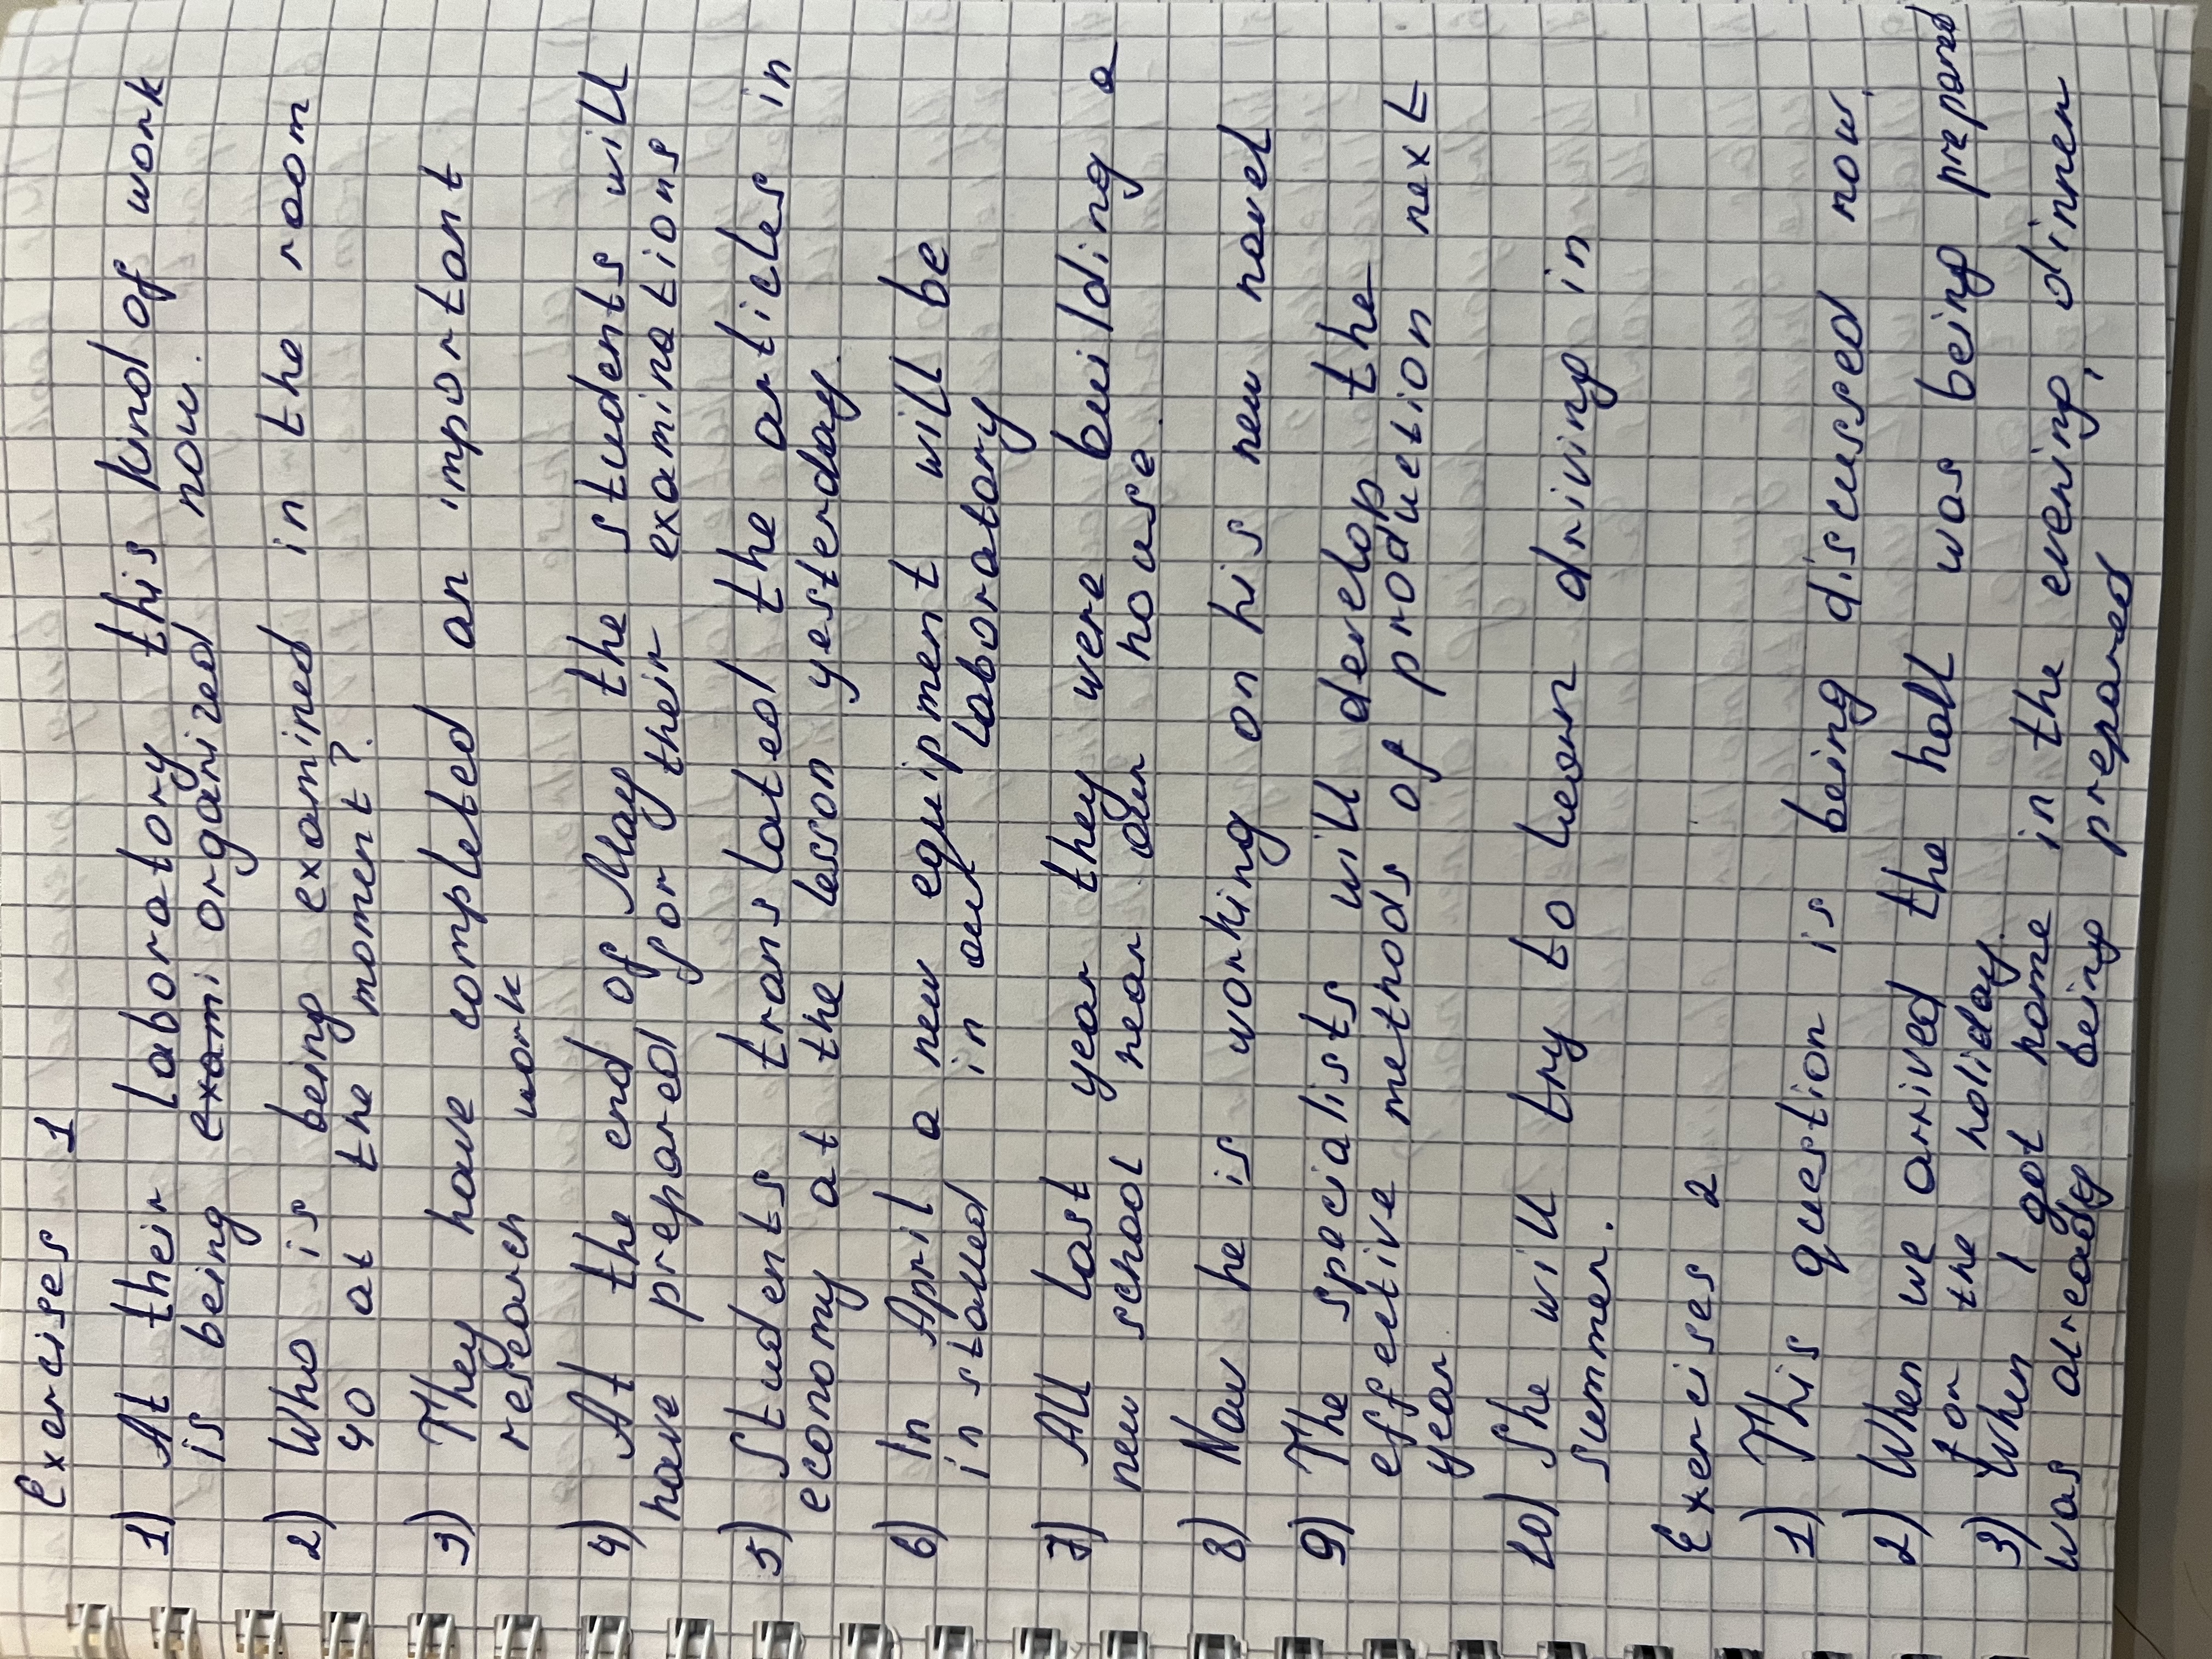 Exercises 1
1) At their laboratory this kind of work
is being exami organized now.
2) Who is being examined in the room
40 at the moment?
3) They have completed an important
research work
4) At the end of May the students will
have prepared for their examinations
5) Students translated the articles in
economy at the lesson yesterday.
6) In April a new equipment will be
installed in our laboratory
7) All last year they were building a
new school near our house.
8) Now he is working on his new novel
9) The specialists will develop the
effective methods of production next
year
10) She will try to learn driving in
summer.
Exercises 2
1) This question is being discussed now.
2) When we arrived the hall was being prepared
for the holiday.
3) When I got home in the evening, dinner
was already being prepared